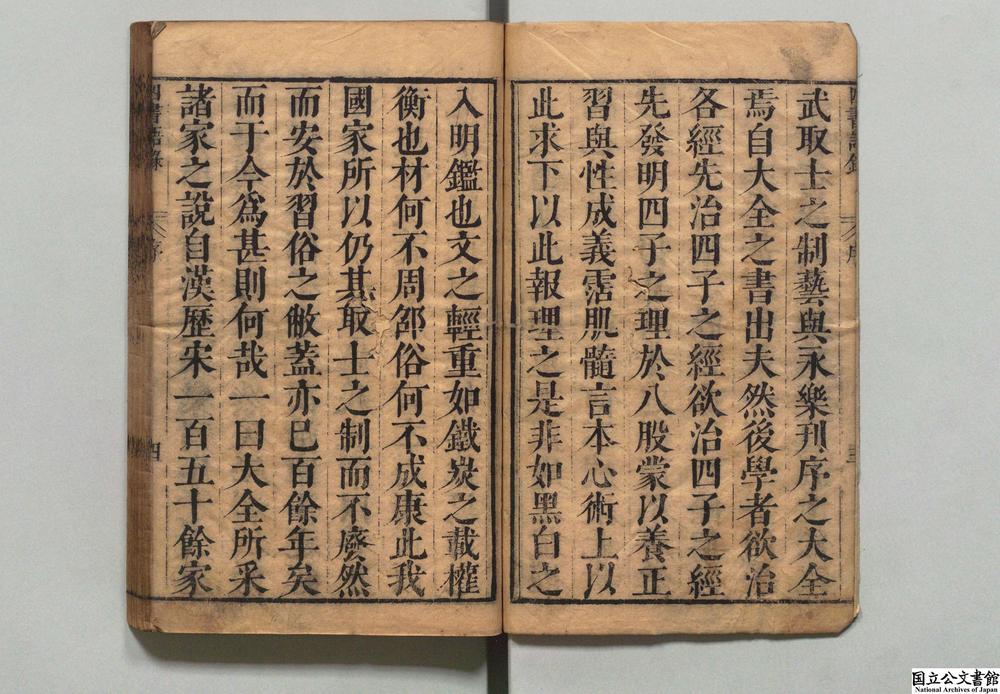 武取士之制藝與永樂刊序之大全
焉自大全之書出夫然後學者欲治
各經先治四子之經欲治四子之經
先發明四子之理於八股蒙以養正
習與性成義霑肌髓言本心術上以
此求下以此報理之是非如黑白之
入明鑑也文之輕重如鐵炭之載權
衡也材何不周郃俗何不成康此我
國家所以仍其取士之制而不廢然
而安於習俗之敝蓋亦已百餘年矣
而于今爲甚則何哉一曰大全所采
諸家之說自漢歷宋一百五十餘家
四書語錄
序
四
国立公文書館
National Archives of Japan